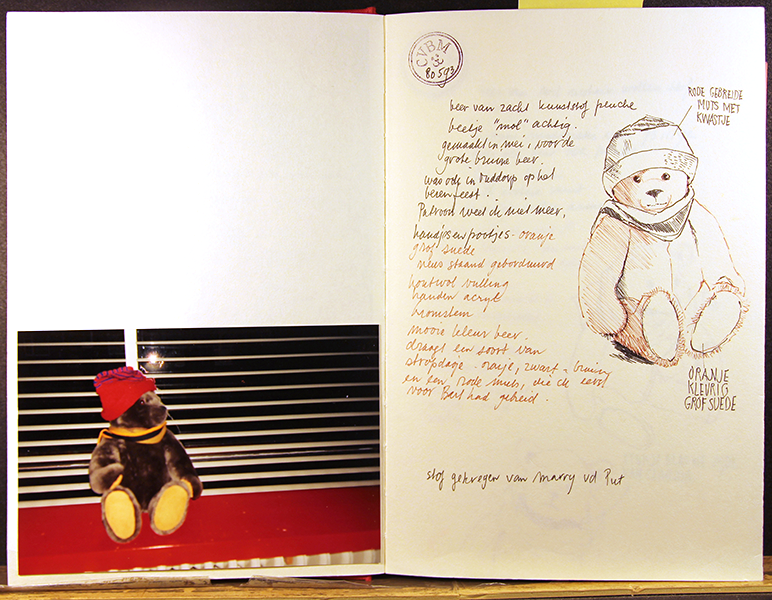 CVBM
80593
beer van zacht kunststof pluche
beetje "mol" achtig.
gemaakt in mei, voor de
grote bruine beer.
was ook in Ouddorp op het
berenfeest.
Patroon weet ik niet meer,
handjes en pootjes - oranje
grof suede
neus staand geborduurd
houtwol vulling
handen acryl
bromstem
mooie kleur beer.
draagt een soort van
stropdasje - oranje, zwart - bruin
en een rode muts, die ik eerst
voor Bart had gebreid.
stof gekregen van Marry vd Put
RODE GEBREIDE
MUTS MET
KWASTJE
ORANJE
KLEURIG
GROF SUEDE